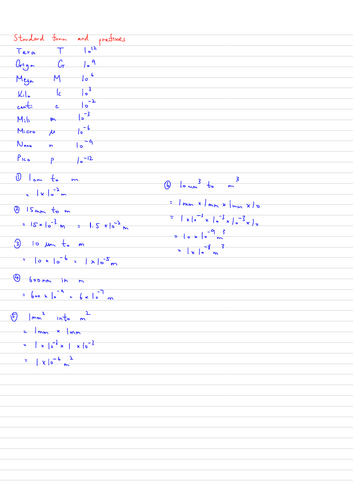 Standard form and prefixes
Tera T 10¹²
Giga G 10⁹
Mega M 10⁶
Kilo k 10³
centi c 10⁻²
Mili m 10⁻³
Micro μ 10⁻⁶
Nano n 10⁻⁹
Pico p 10⁻¹²
① 1cm to m
= 1×10⁻² m
② 15mm to m
= 15×10⁻³ m = 1.5×10⁻² m
③ 10 μm to m
= 10×10⁻⁶ = 1×10⁻⁵ m
④ 600nm in m
= 600×10⁻⁹ = 6×10⁻⁷ m
⑤ 1mm² into m²
= 1mm × 1mm
= 1×10⁻³ × 1×10⁻³
= 1×10⁻⁶ m²
⑥ 10mm³ to m³
= 1mm × 1mm × 1mm × 10
= 1×10⁻³×10⁻³×10⁻³×10
= 10×10⁻⁹ m³
= 1×10⁻⁸ m³